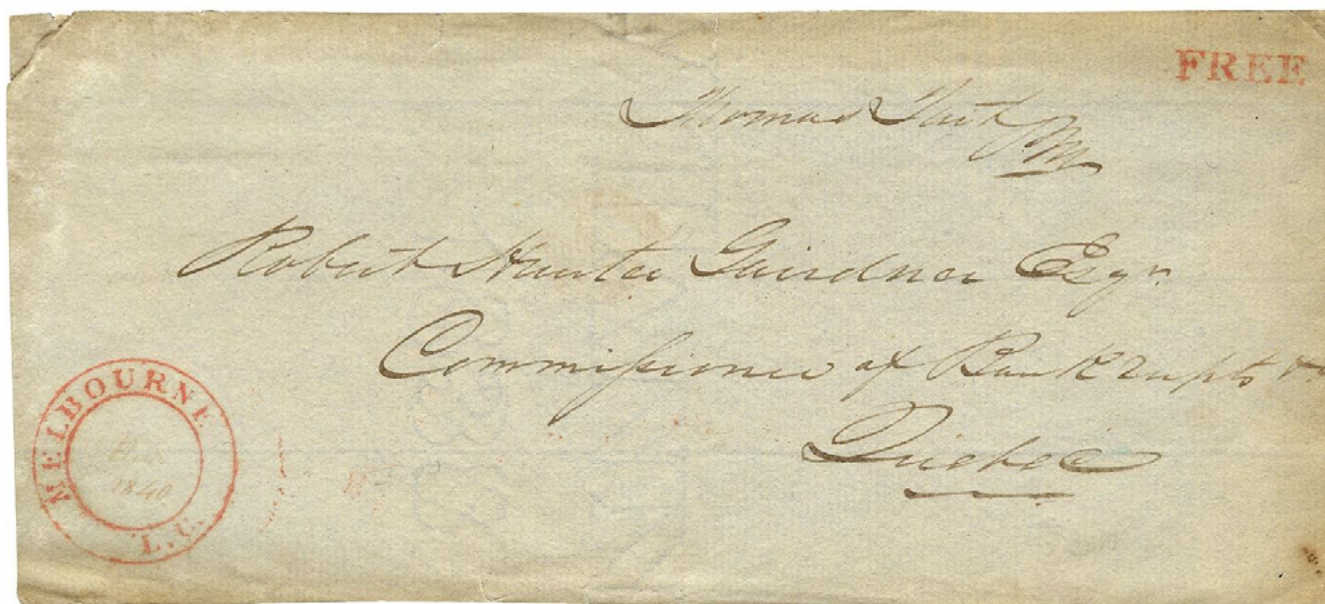 FREE
Thomas Tait PM
Robert Hunter Gairdner Esqr.
Commissioner of Bankrupts &c
Quebec
MELBOURNE
1840
L.C.